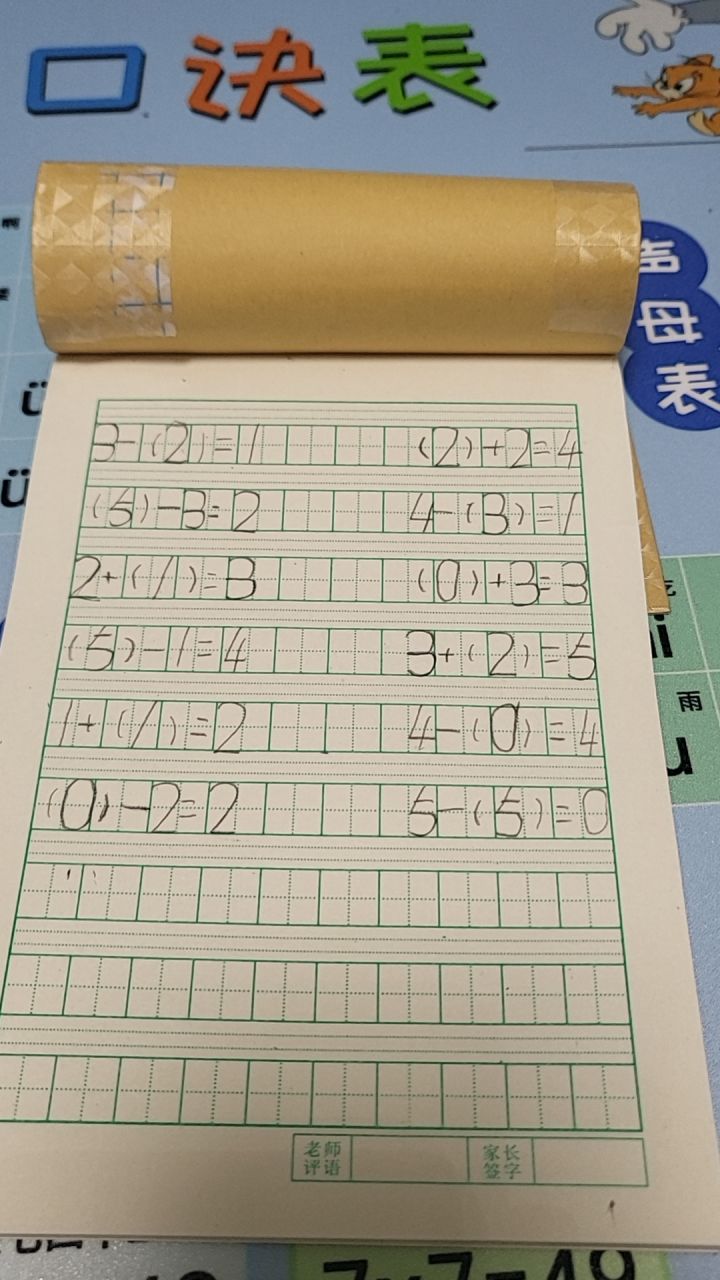 口诀表
声
母
表
ü
ü
3-(2)=1 (2)+2=4
(5)-3=2 4-(3)=1
2+(1)=3 (0)+3=3
(5)-1=4 3+(2)=5
1+(1)=2 4-(0)=4
(0)-2=2 5-(5)=0
雨
u
老师评语 家长签字
7×7=49